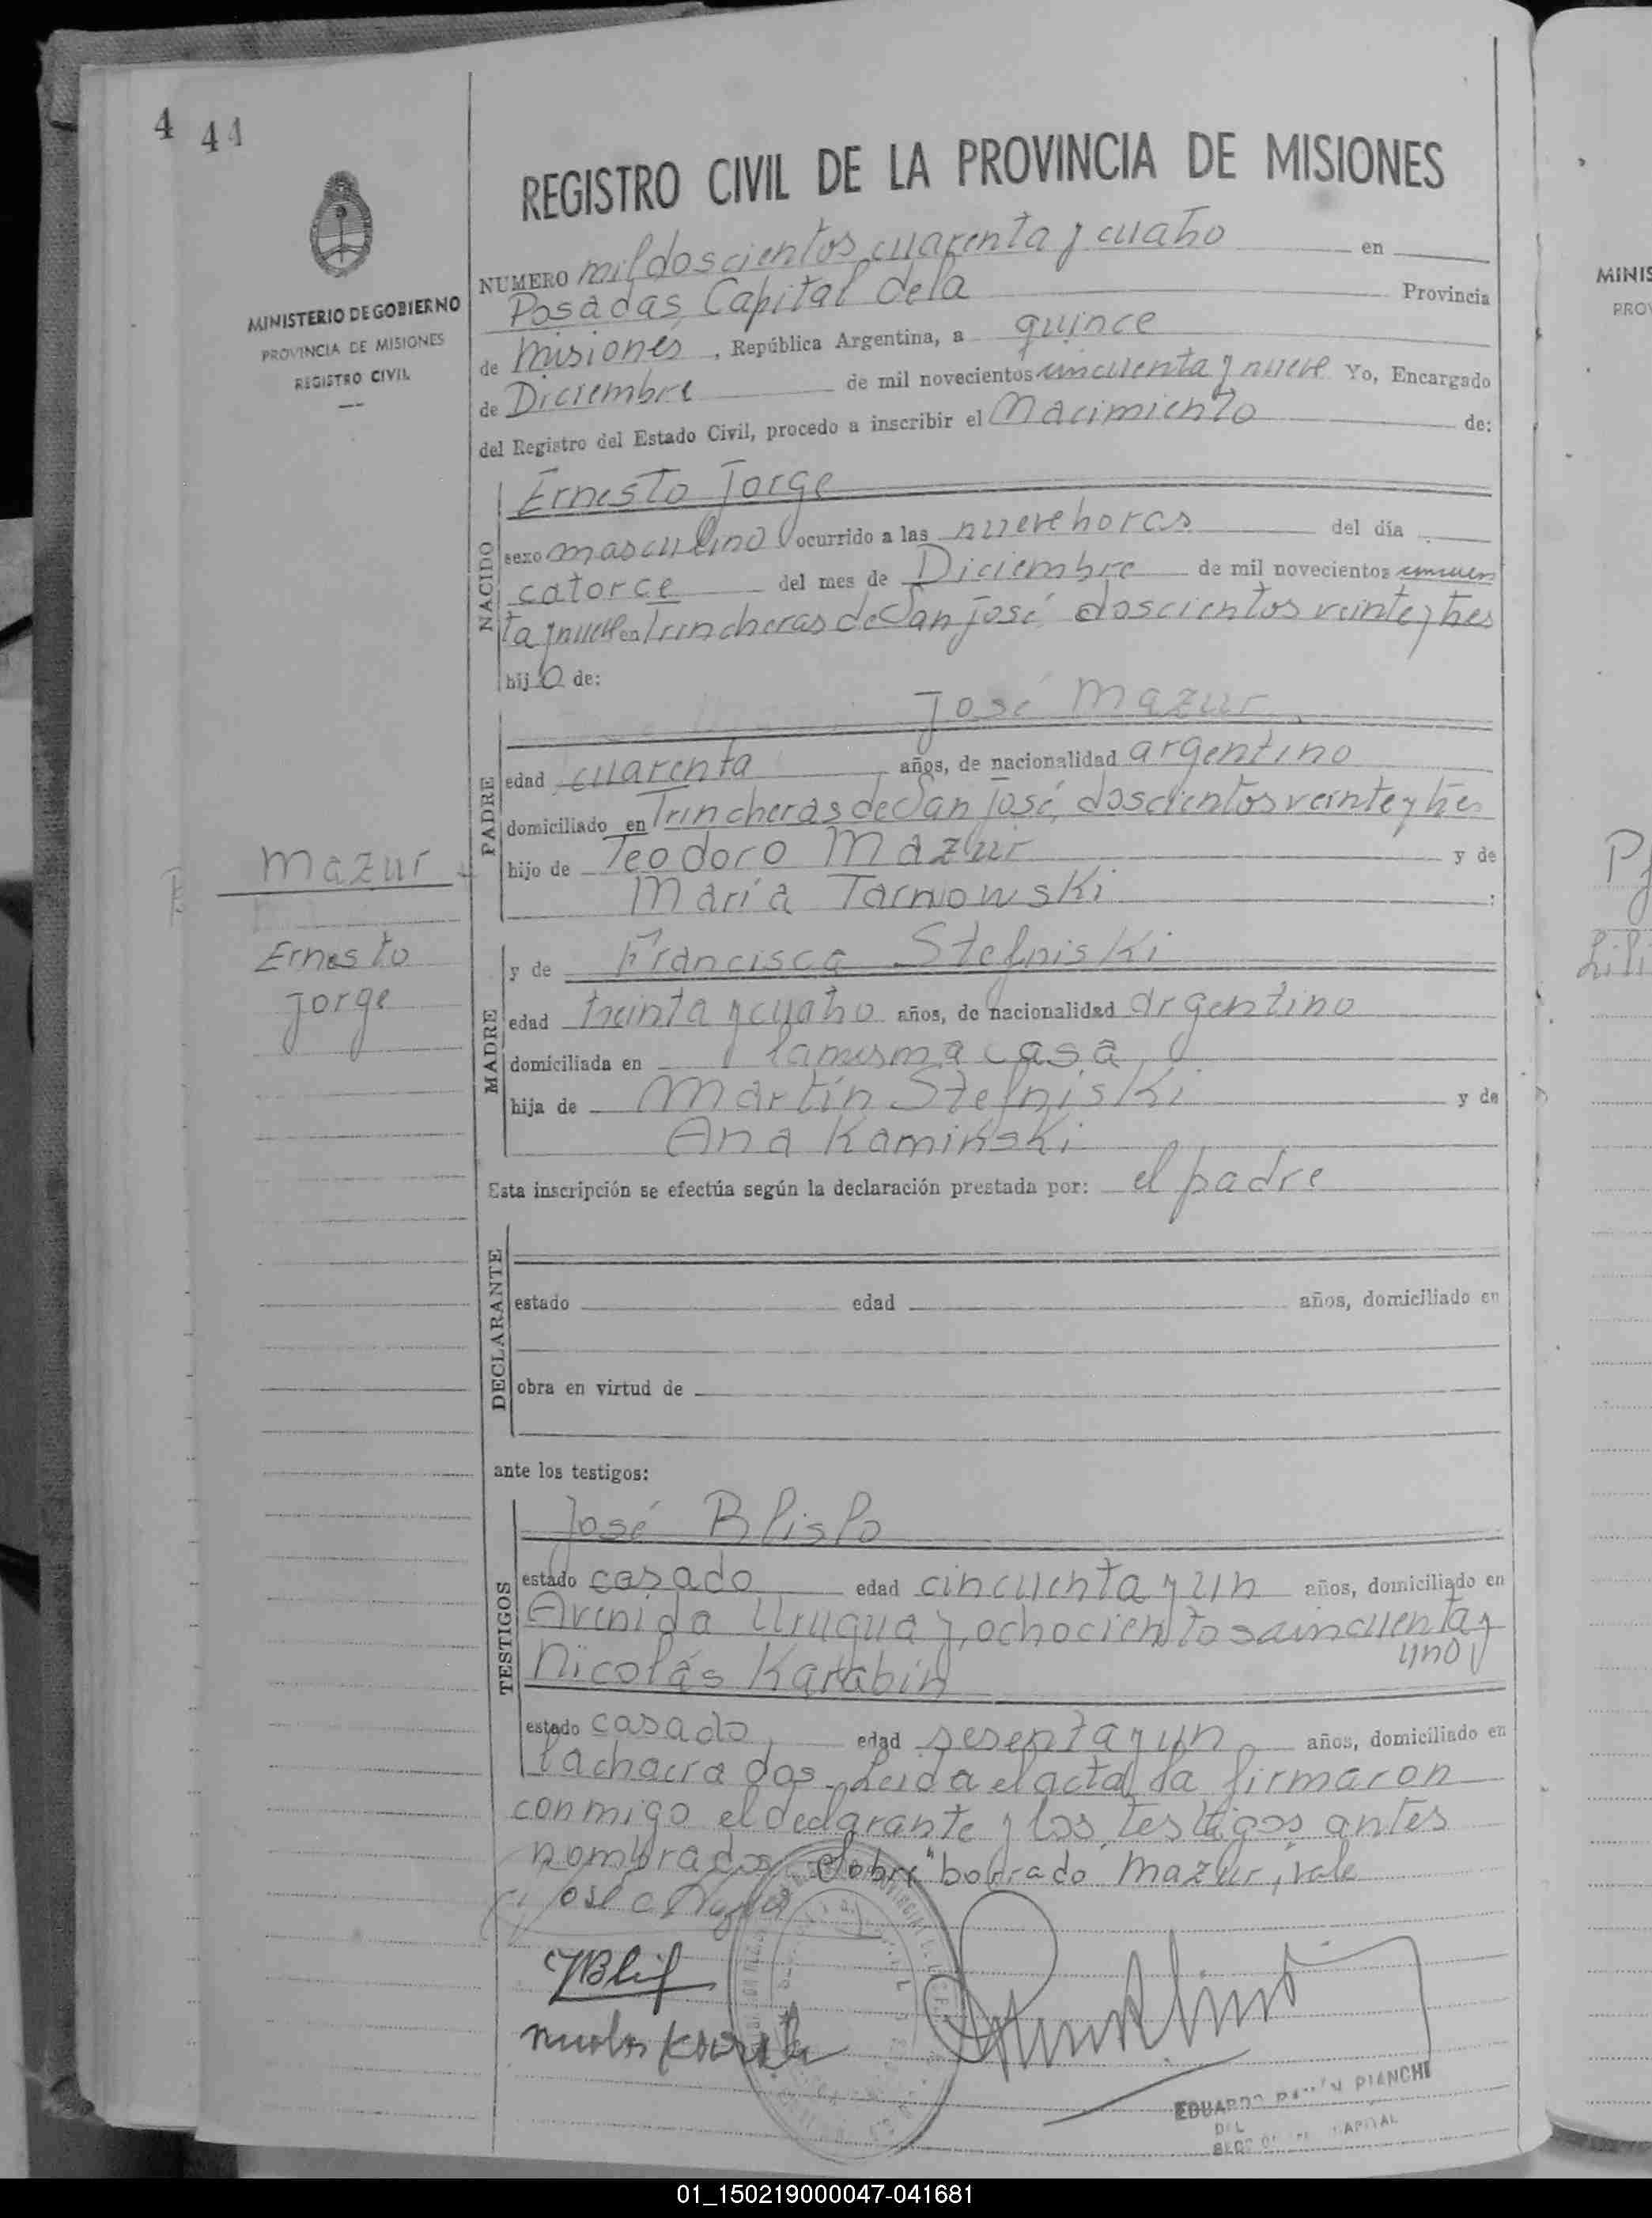 4 44
REGISTRO CIVIL DE LA PROVINCIA DE MISIONES
MINISTERIO DE GOBIERNO
PROVINCIA DE MISIONES
REGISTRO CIVIL
NUMERO mil doscientos cuarenta y cuatro en
Posadas, Capital de la Provincia
de Misiones, República Argentina, a quince
de Diciembre de mil novecientos cincuenta y nueve Yo, Encargado
del Registro del Estado Civil, procedo a inscribir el Nacimiento de:
NACIDO
Ernesto Jorge
sexo masculino ocurrido a las nueve horas del día
catorce del mes de Diciembre de mil novecientos cincuen
ta y nueve en Trincheras de San José, doscientos veinte y tres
hijo de:
PADRE
José Mazur
edad cuarenta años, de nacionalidad argentino
domiciliado en Trincheras de San José, doscientos veinte y tres
hijo de Teodoro Mazur y de
María Tarnowski ;
Mazur
Ernesto
Jorge
MADRE
y de Francisca Stefniski
edad treinta y cuatro años, de nacionalidad argentino
domiciliada en la misma casa
hija de Martín Stefniski y de
Ana Kaminski
Esta inscripción se efectúa según la declaración prestada por: el padre
DECLARANTE
estado edad años, domiciliado en
obra en virtud de
ante los testigos:
TESTIGOS
José
estado casado edad cincuenta y un años, domiciliado en
Avenida Uruguay, ochocientos cincuenta y
uno y
Nicolás Karabin
estado casado, edad sesenta y un años, domiciliado en
la chacra dos. Leida el acta la firmaron
conmigo el declarante y los testigos antes
nombrados. Sobre "borrado" Mazur, vale
EDUARDO RAMON PIANCHI
DEL
CAPITAL
MINIS
PROV
01_150219000047-041681